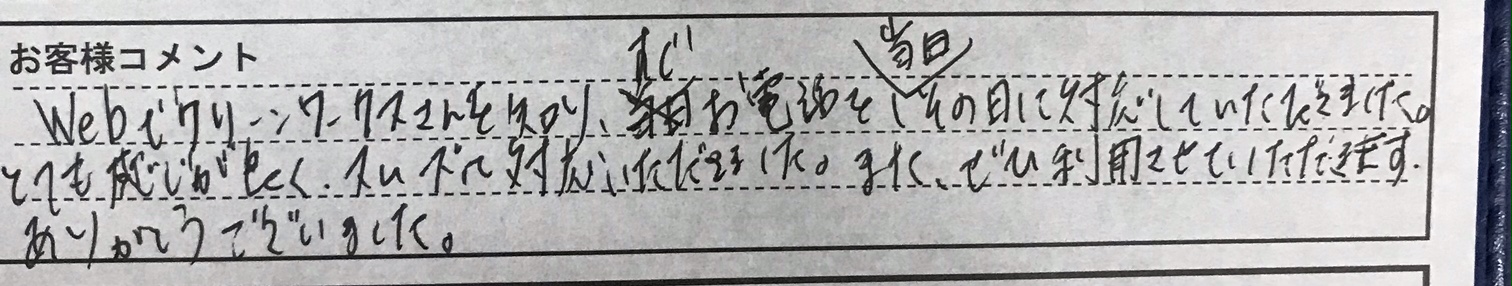 お客様コメント
Webでクリーンワークスさんを知り、すぐお電話をし当日その日に対応していただきました。
とても感じが良く、スムーズに対応いただきました。また、ぜひ利用させていただきます。
ありがとうございました。